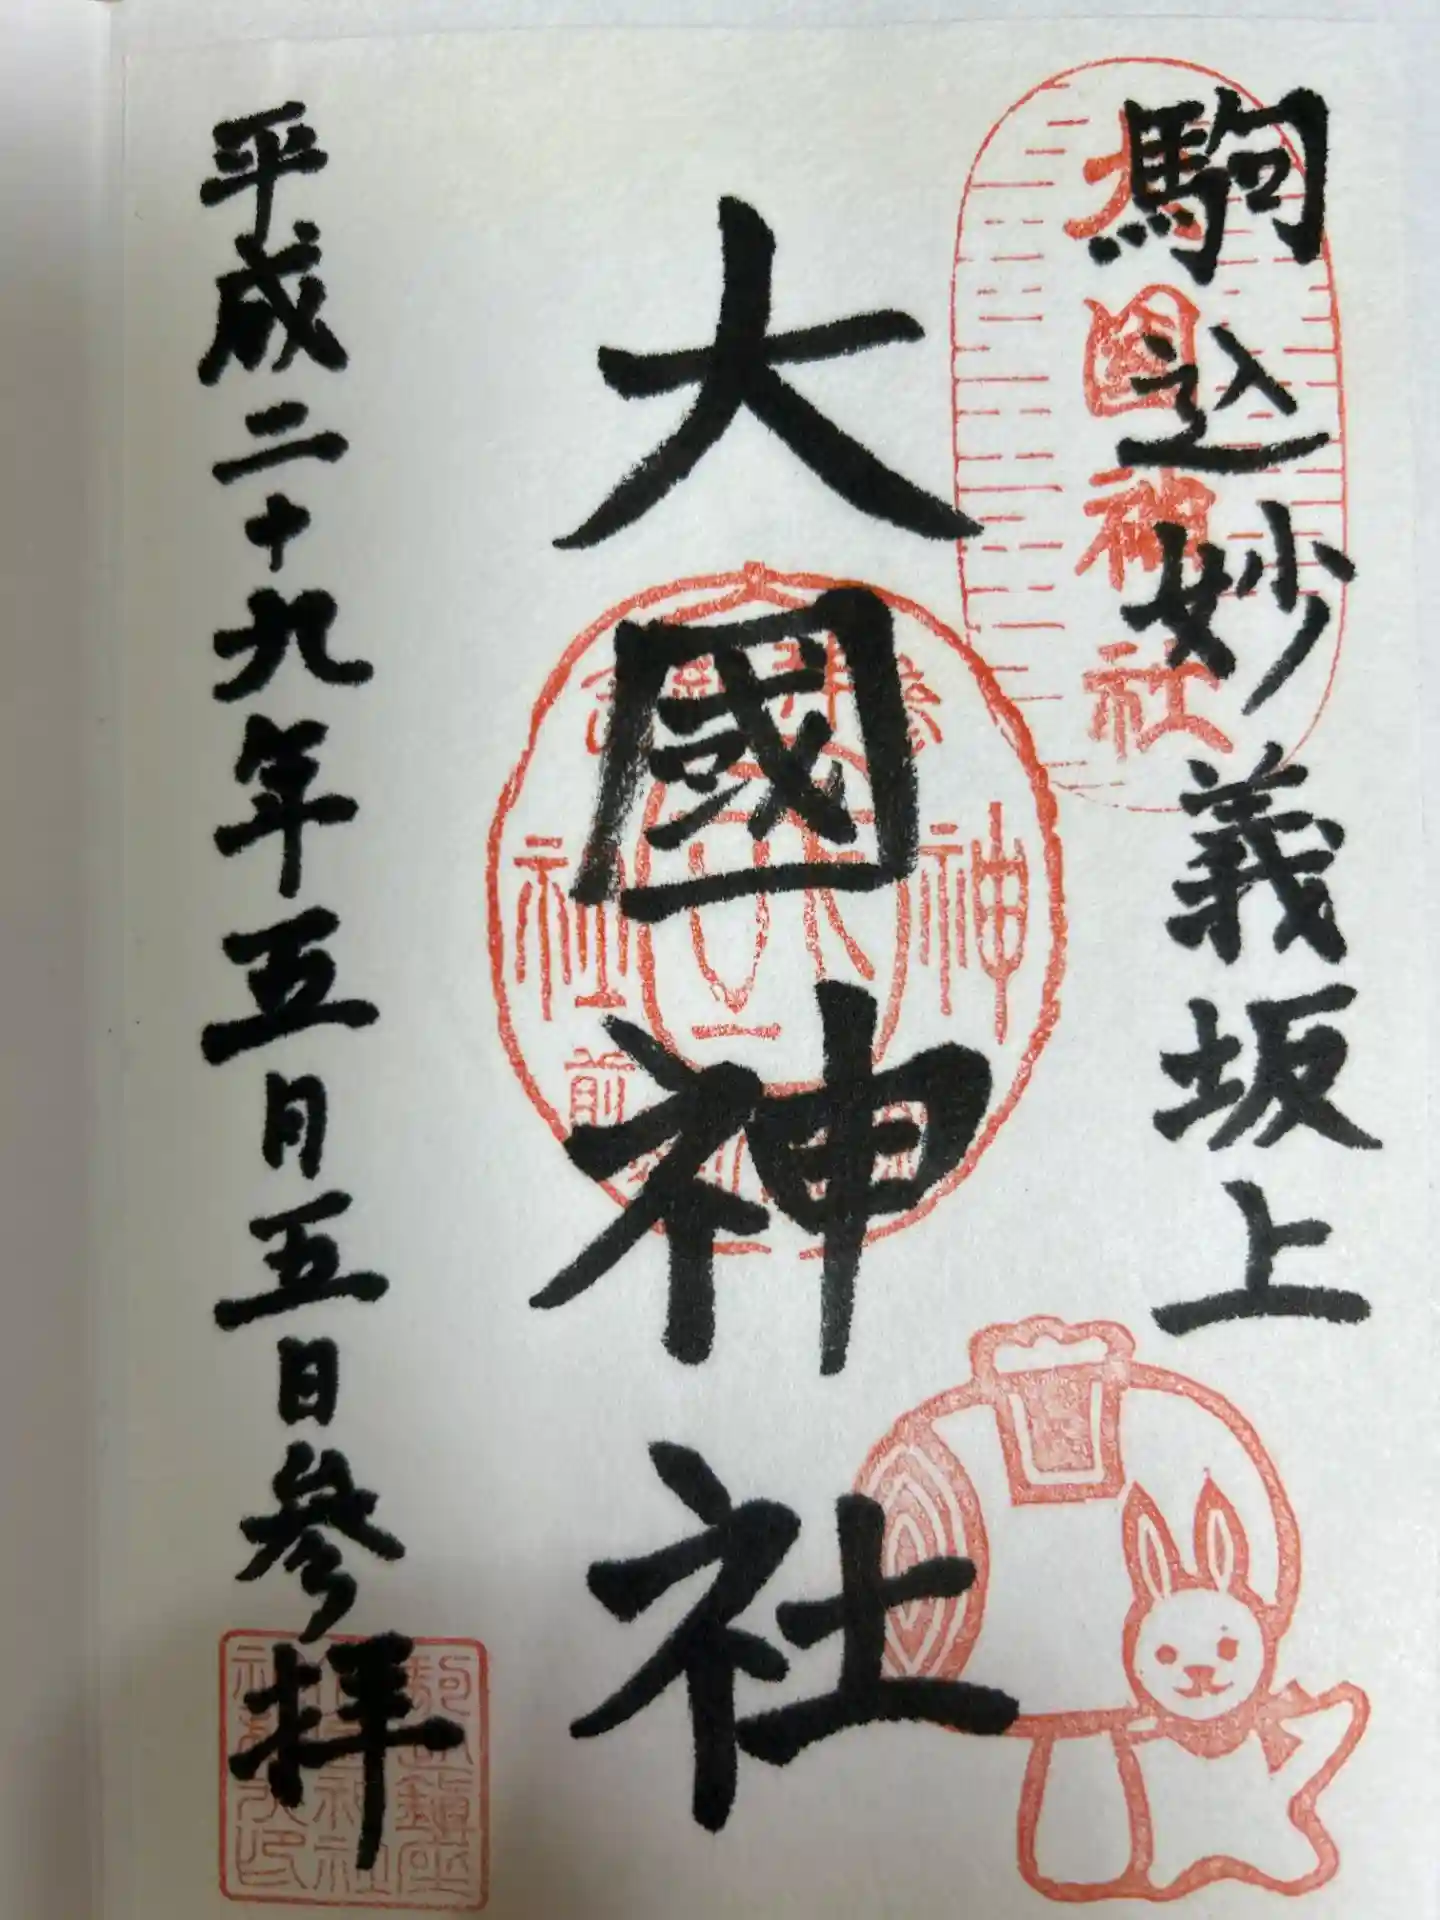 駒込妙義坂上
大國神社
大國神社
神社
平成二十九年五月五日參拝